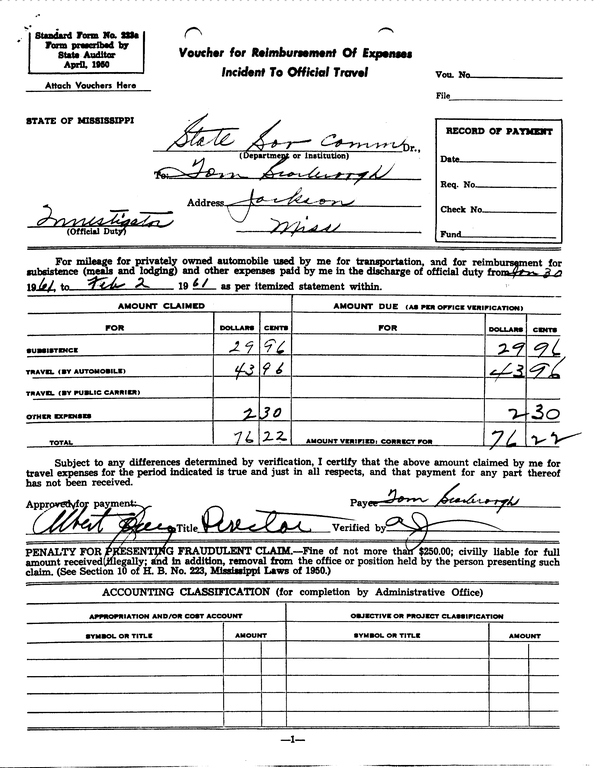 Standard Form No. 223a
Form prescribed by
State Auditor
April, 1950
Attach Vouchers Here
Voucher for Reimbursement Of Expenses
Incident To Official Travel
Vou. No.
File
STATE OF MISSISSIPPI
State Sov Comm Dr.,
(Department or Institution)
To: Tom Scarbrough
Address Jackson
Miss
Investigator
(Official Duty)
RECORD OF PAYMENT
Date
Req. No.
Check No.
Fund
For mileage for privately owned automobile used by me for transportation, and for reimbursement for
subsistence (meals and lodging) and other expenses paid by me in the discharge of official duty from Jan 30
1961, to Feb 2 1961 as per itemized statement within.
AMOUNT CLAIMED AMOUNT DUE (AS PER OFFICE VERIFICATION)
FOR DOLLARS CENTS FOR DOLLARS CENTS
SUBSISTENCE 29 96 29 96
TRAVEL (BY AUTOMOBILE) 43 96 43 96
TRAVEL (BY PUBLIC CARRIER)
OTHER EXPENSES 2 30 2 30
TOTAL 76 22 AMOUNT VERIFIED: CORRECT FOR 76 22
Subject to any differences determined by verification, I certify that the above amount claimed by me for
travel expenses for the period indicated is true and just in all respects, and that payment for any part thereof
has not been received.
Approved for payment: Payee Tom Scarbrough
Albert Title Director Verified by
PENALTY FOR PRESENTING FRAUDULENT CLAIM.—Fine of not more than $250.00; civilly liable for full
amount received illegally; and in addition, removal from the office or position held by the person presenting such
claim. (See Section 10 of H. B. No. 223, Mississippi Laws of 1950.)
ACCOUNTING CLASSIFICATION (for completion by Administrative Office)
APPROPRIATION AND/OR COST ACCOUNT OBJECTIVE OR PROJECT CLASSIFICATION
SYMBOL OR TITLE AMOUNT SYMBOL OR TITLE AMOUNT
—1—